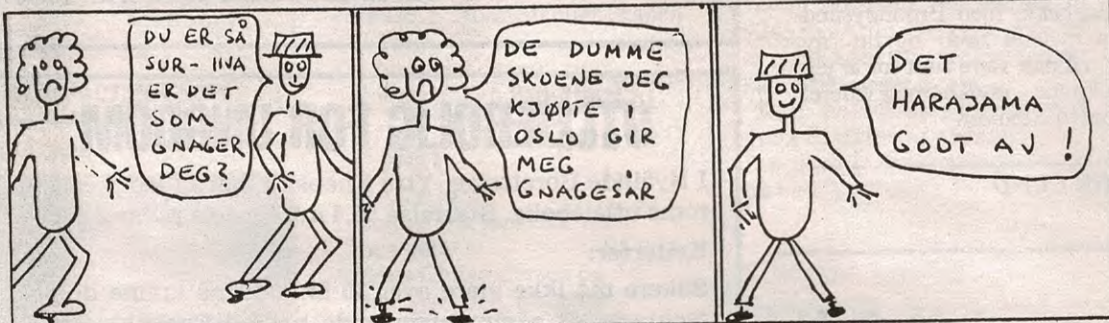 DU ER SÅ
SUR - HVA
ER DET
SOM
GNAGER
DEG?
DE DUMME
SKOENE JEG
KJØPTE
OSLO GIR
MEG
GNAGESÅR
DET
HARAJAMA
GODT AV !